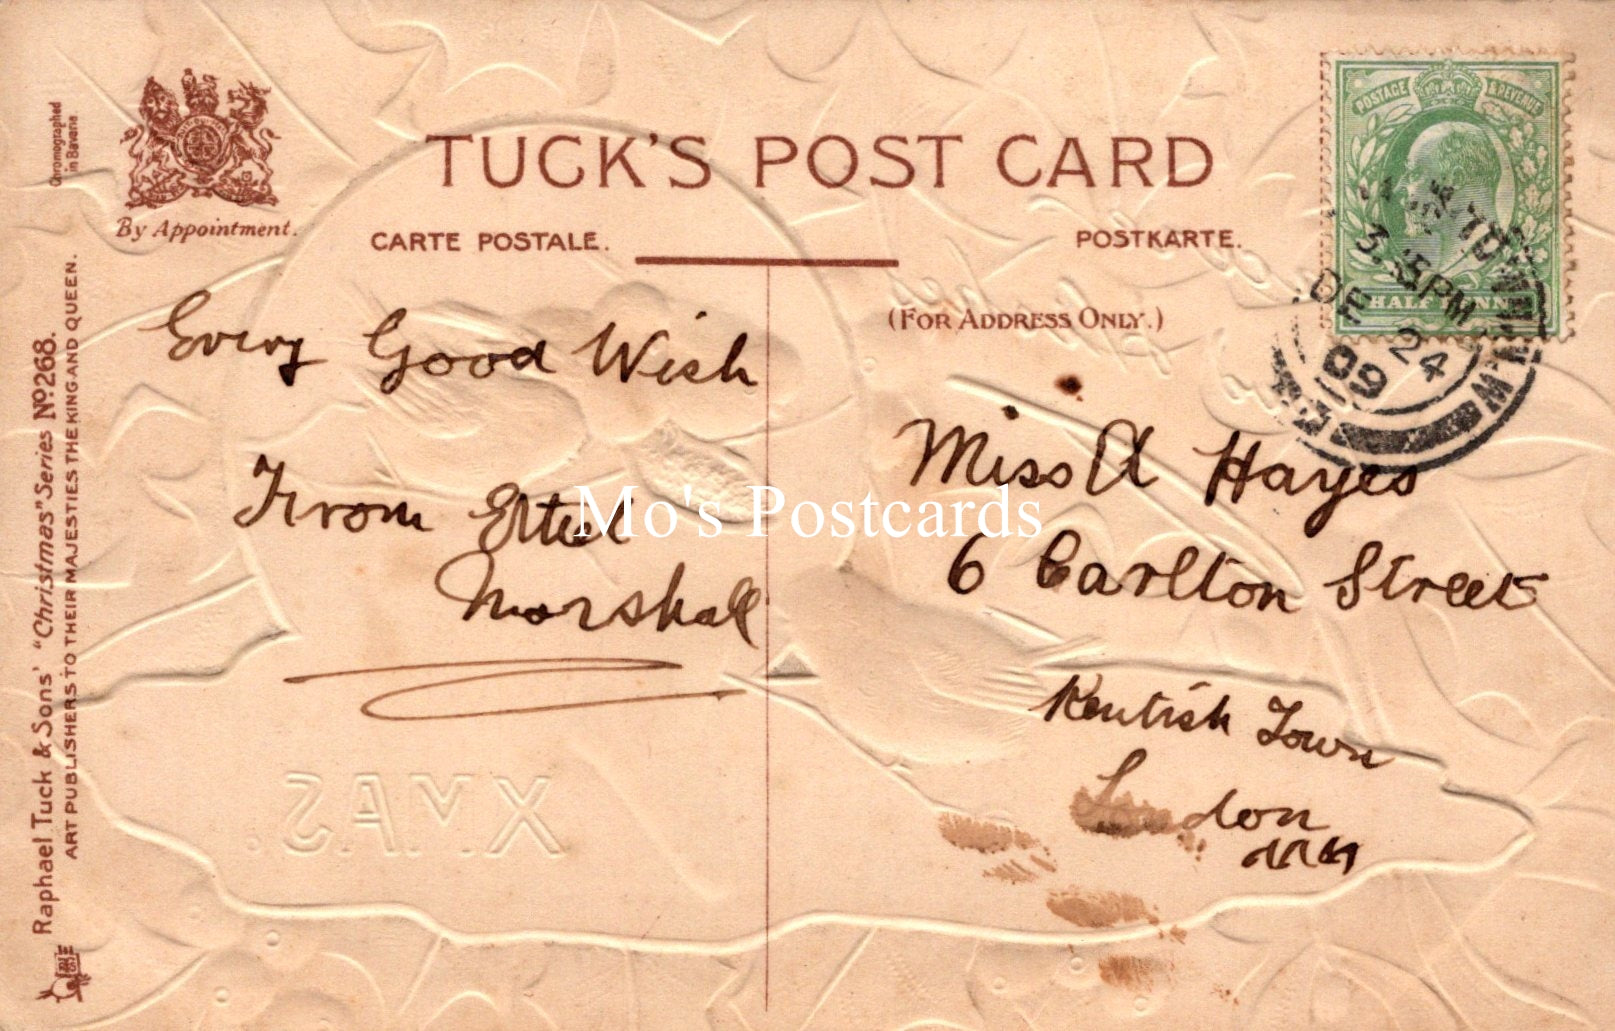 Chromographed
in Bavaria
By Appointment.
TUCK'S POST CARD
CARTE POSTALE.
POSTKARTE.
(FOR ADDRESS ONLY.)
POSTAGE & REVENUE
HALFPENNY
3. 15 PM
DE 24
09
N.W.
Every Good Wish
From Ethel
Marshall
Miss A Hayes
6 Carlton Street
Kentish Town
London
NW
Mo's Postcards
XMAS.
Raphael Tuck & Sons' "Christmas" Series No. 268.
ART PUBLISHERS TO THEIR MAJESTIES THE KING AND QUEEN.